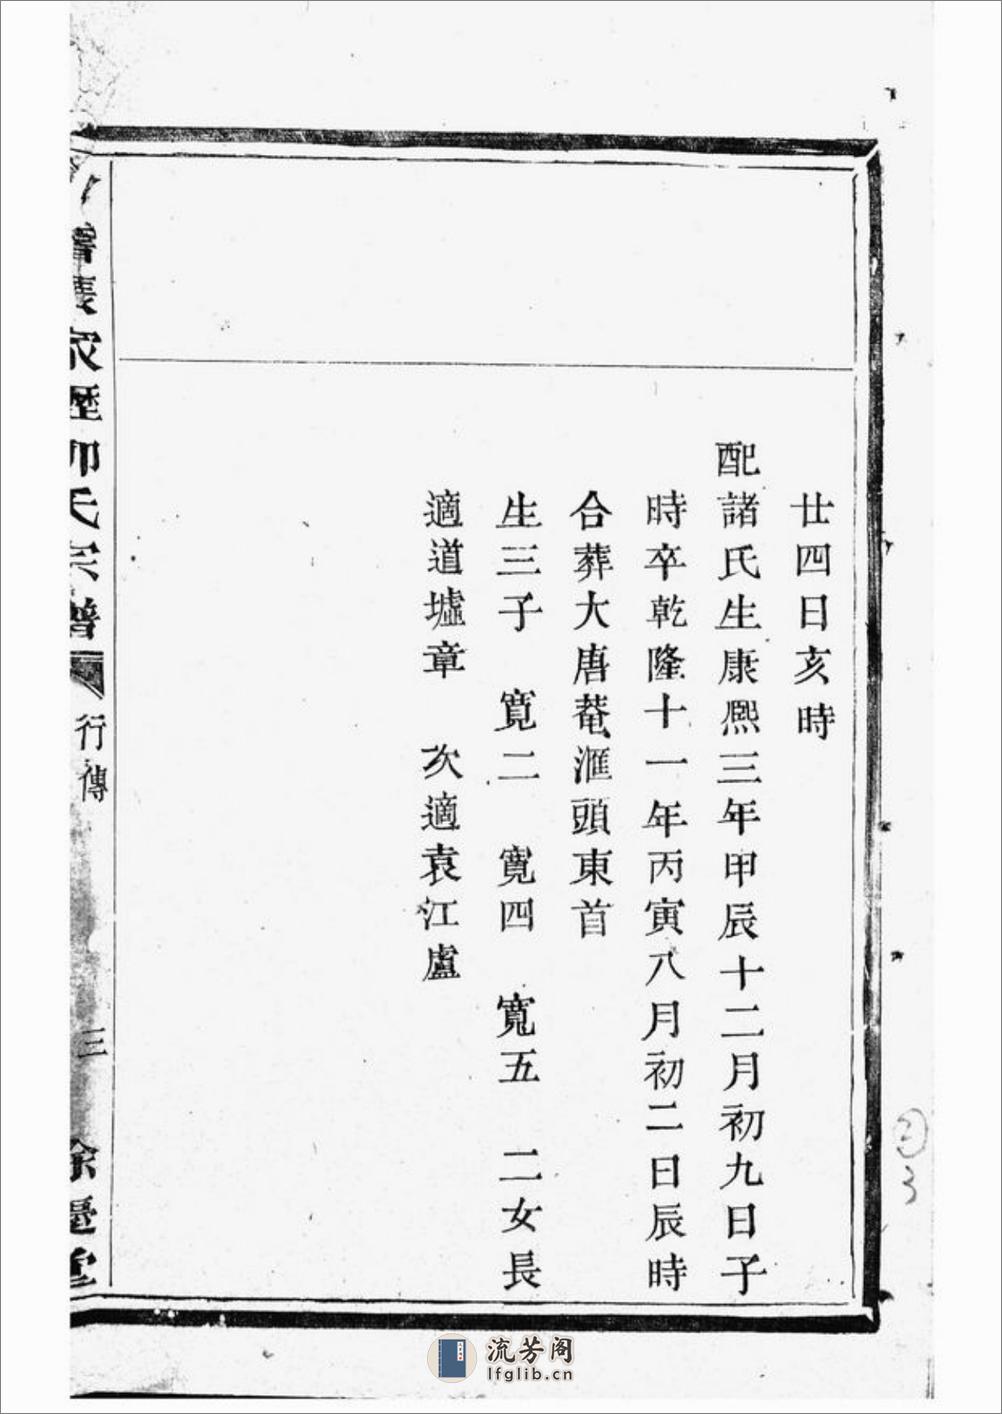 廿四日亥時
配諸氏生康熙三年甲辰十二月初九日子
時卒乾隆十一年丙寅八月初二日辰時
合葬大唐菴滙頭東首
生三子 寬二 寬四 寬五 二女長
適道墟章 次適袁江盧
家歷 氏宗譜
行傳
三
餘慶堂
3
流芳阁
lfglib.cn